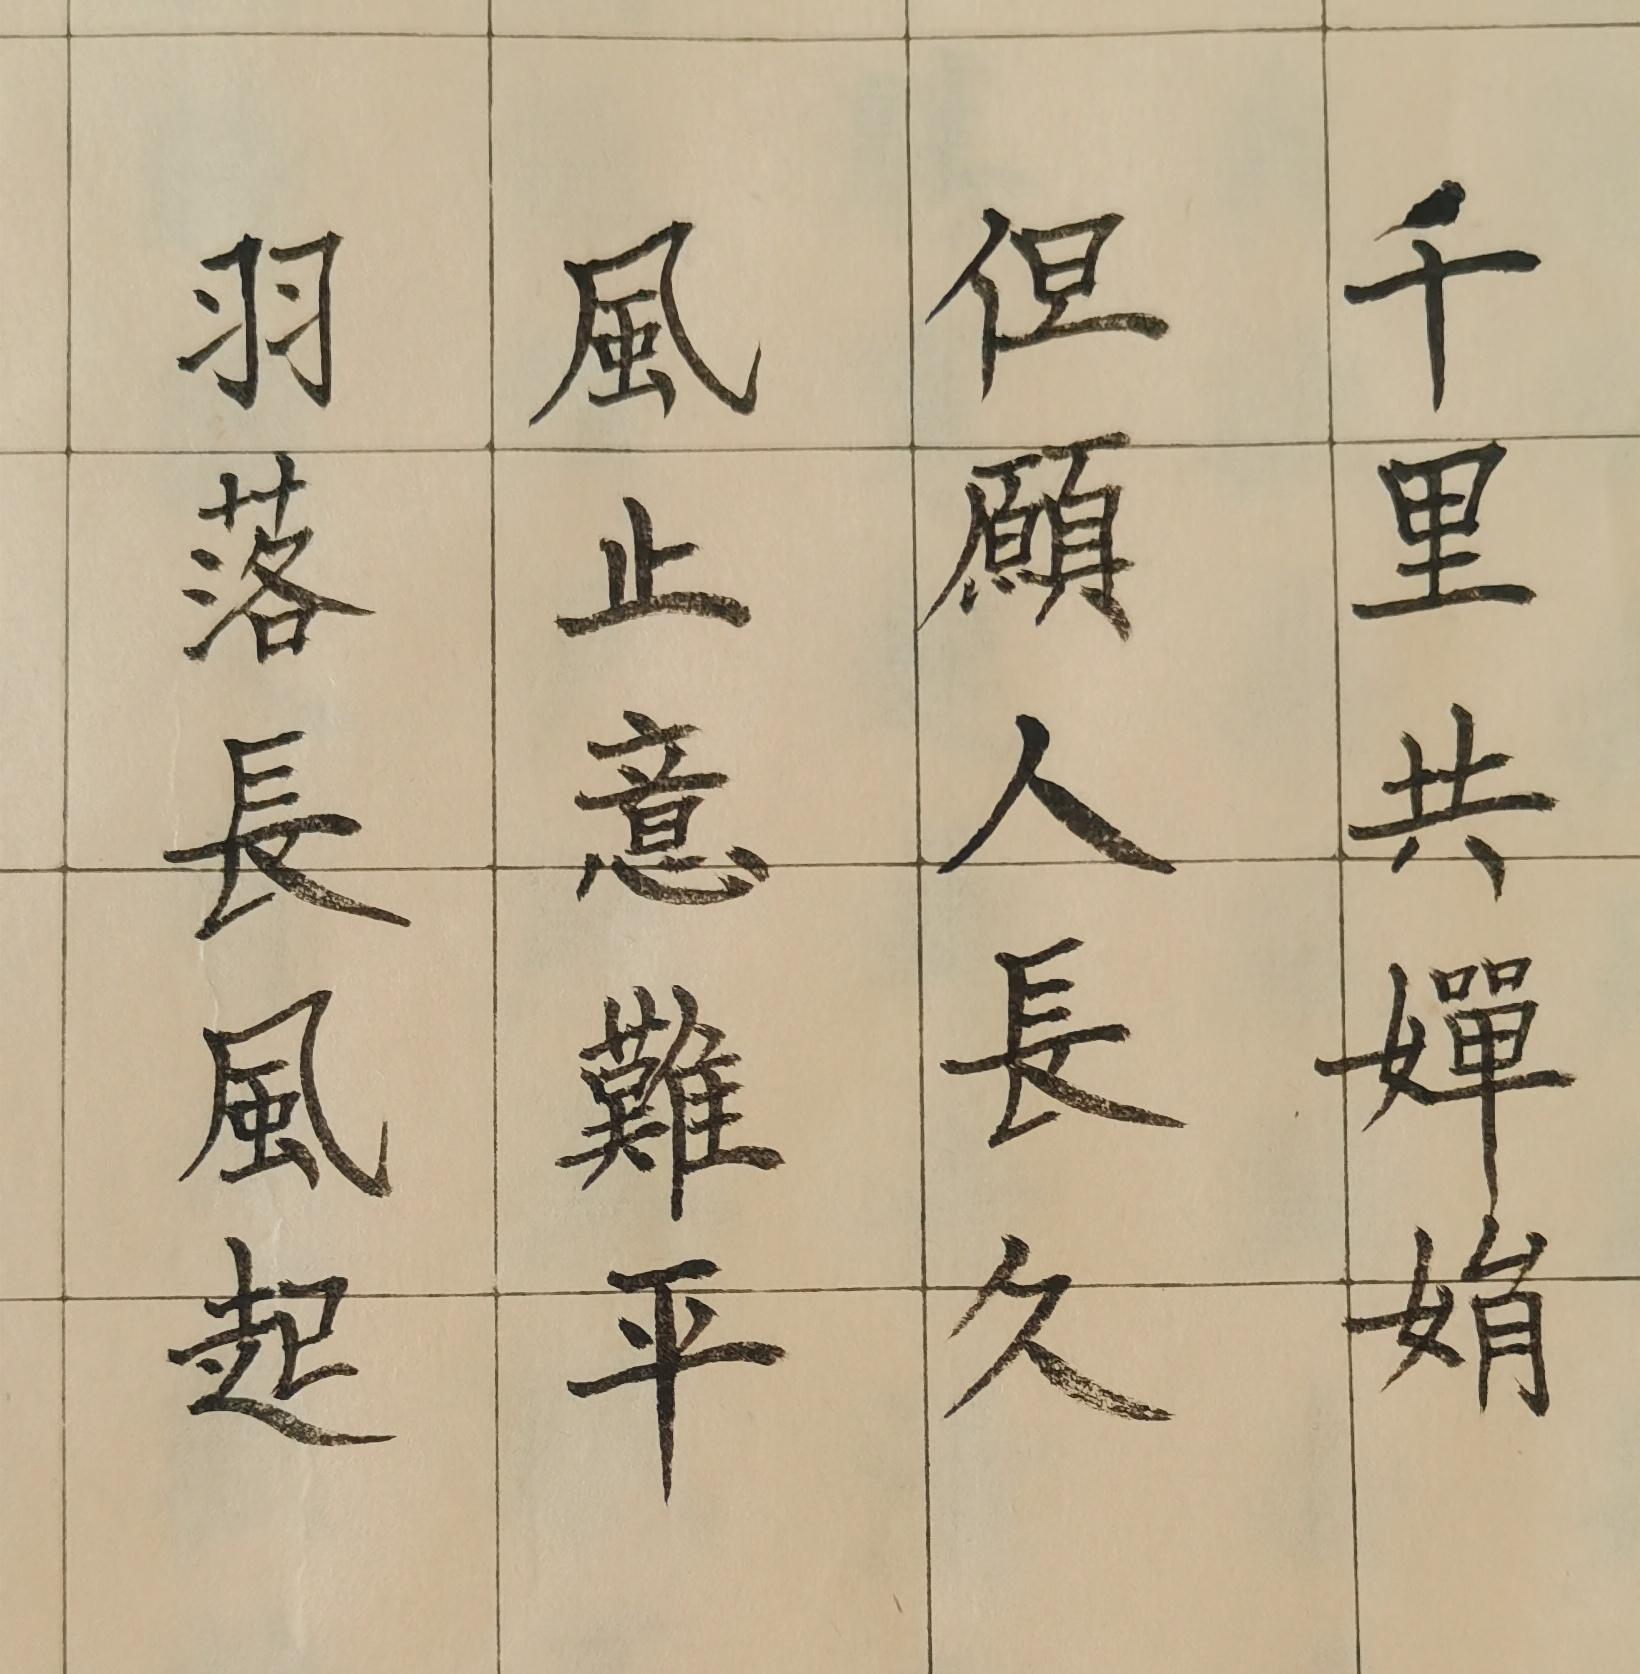 千里共嬋娟
但願人長久
風止意難平
羽落長風起